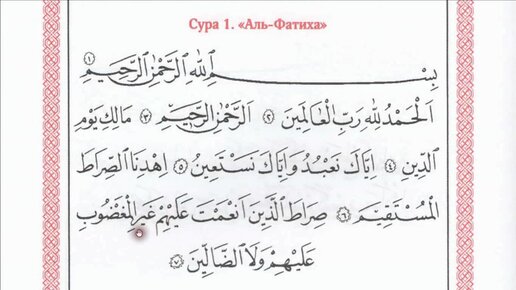 Сура 1. «Аль-Фатиха»
بِسْمِ اللهِ الرَّحْمٰنِ الرَّحِيمِ ﴿١﴾
اَلْحَمْدُ لِلهِ رَبِّ الْعَالَمِينَ ﴿٢﴾ اَلرَّحْمٰنِ الرَّحِيمِ ﴿٣﴾ مَالِكِ يَوْمِ
الدِّينِ ﴿٤﴾ اِيَّاكَ نَعْبُدُ وَاِيَّاكَ نَسْتَعِينُ ﴿٥﴾ اِهْدِنَا الصِّرَاطَ
الْمُسْتَقِيمَ ﴿٦﴾ صِرَاطَ الَّذِينَ اَنْعَمْتَ عَلَيْهِمْ غَيْرِ الْمَغْضُوبِ
عَلَيْهِمْ وَلَا الضَّالِّينَ ﴿٧﴾